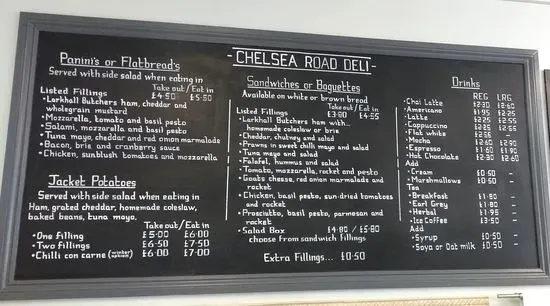 CHELSEA ROAD DELI
Panini's or Flatbread's
Served with side salad when eating in
Take out/Eat in
Listed Fillings £4·50 / £5·50
•Larkhall Butchers ham, cheddar and
wholegrain mustard
•Mozzarella, tomato and basil pesto
•Salami, mozzarella and basil pesto
•Tuna mayo, cheddar and red onion marmalade
•Bacon, brie and cranberry sauce
•Chicken, sunblush tomatoes and mozzarella
Jacket Potatoes
Served with side salad when eating in
Ham, grated cheddar, homemade coleslaw,
baked beans, tuna mayo.
Take out / Eat in
•One filling £5·00 £6·00
•Two fillings £6·50 £7·50
•Chilli con carne (winter option) £6·00 £7·00
Sandwiches or Baguettes
Available on white or brown bread
Take out / Eat in
Listed Fillings £3·80 / £4·55
•Larkhall Butchers ham with..
homemade coleslaw or brie
•Cheddar, chutney and salad
•Prawns in sweet chilli mayo and salad
•Tuna mayo and salad
•Falafel, hummus and salad
•Tomato, mozzarella, rocket and pesto
•Goats cheese, red onion marmalade and
rocket
•Chicken, basil pesto, sun-dried tomatoes
and rocket
•Prosciutto, basil pesto, parmesan and
rocket
•Salad Box £4·80 / £5·80
choose from sandwich fillings
Extra Fillings... £0·50
Drinks
REG LRG
•Chai Latte £2·30 £2·60
•Americano £1·95 £2·25
•Latte £2·25 £2·55
•Cappuccino £2·25 £2·55
•Flat white £2·55
•Mocha £2·60 £2·90
•Espresso £1·60 £1·90
•Hot Chocolate £2·30 £2·60
Add
•Cream £0·50 -
•Marshmallows £0·50 -
Tea
•Breakfast £1·80 -
•Earl Grey £1·80 -
•Herbal £1·95 -
•Ice Coffee £3·50 -
Add
•Syrup £0·50 -
•Soya or Oat milk £0·50 -